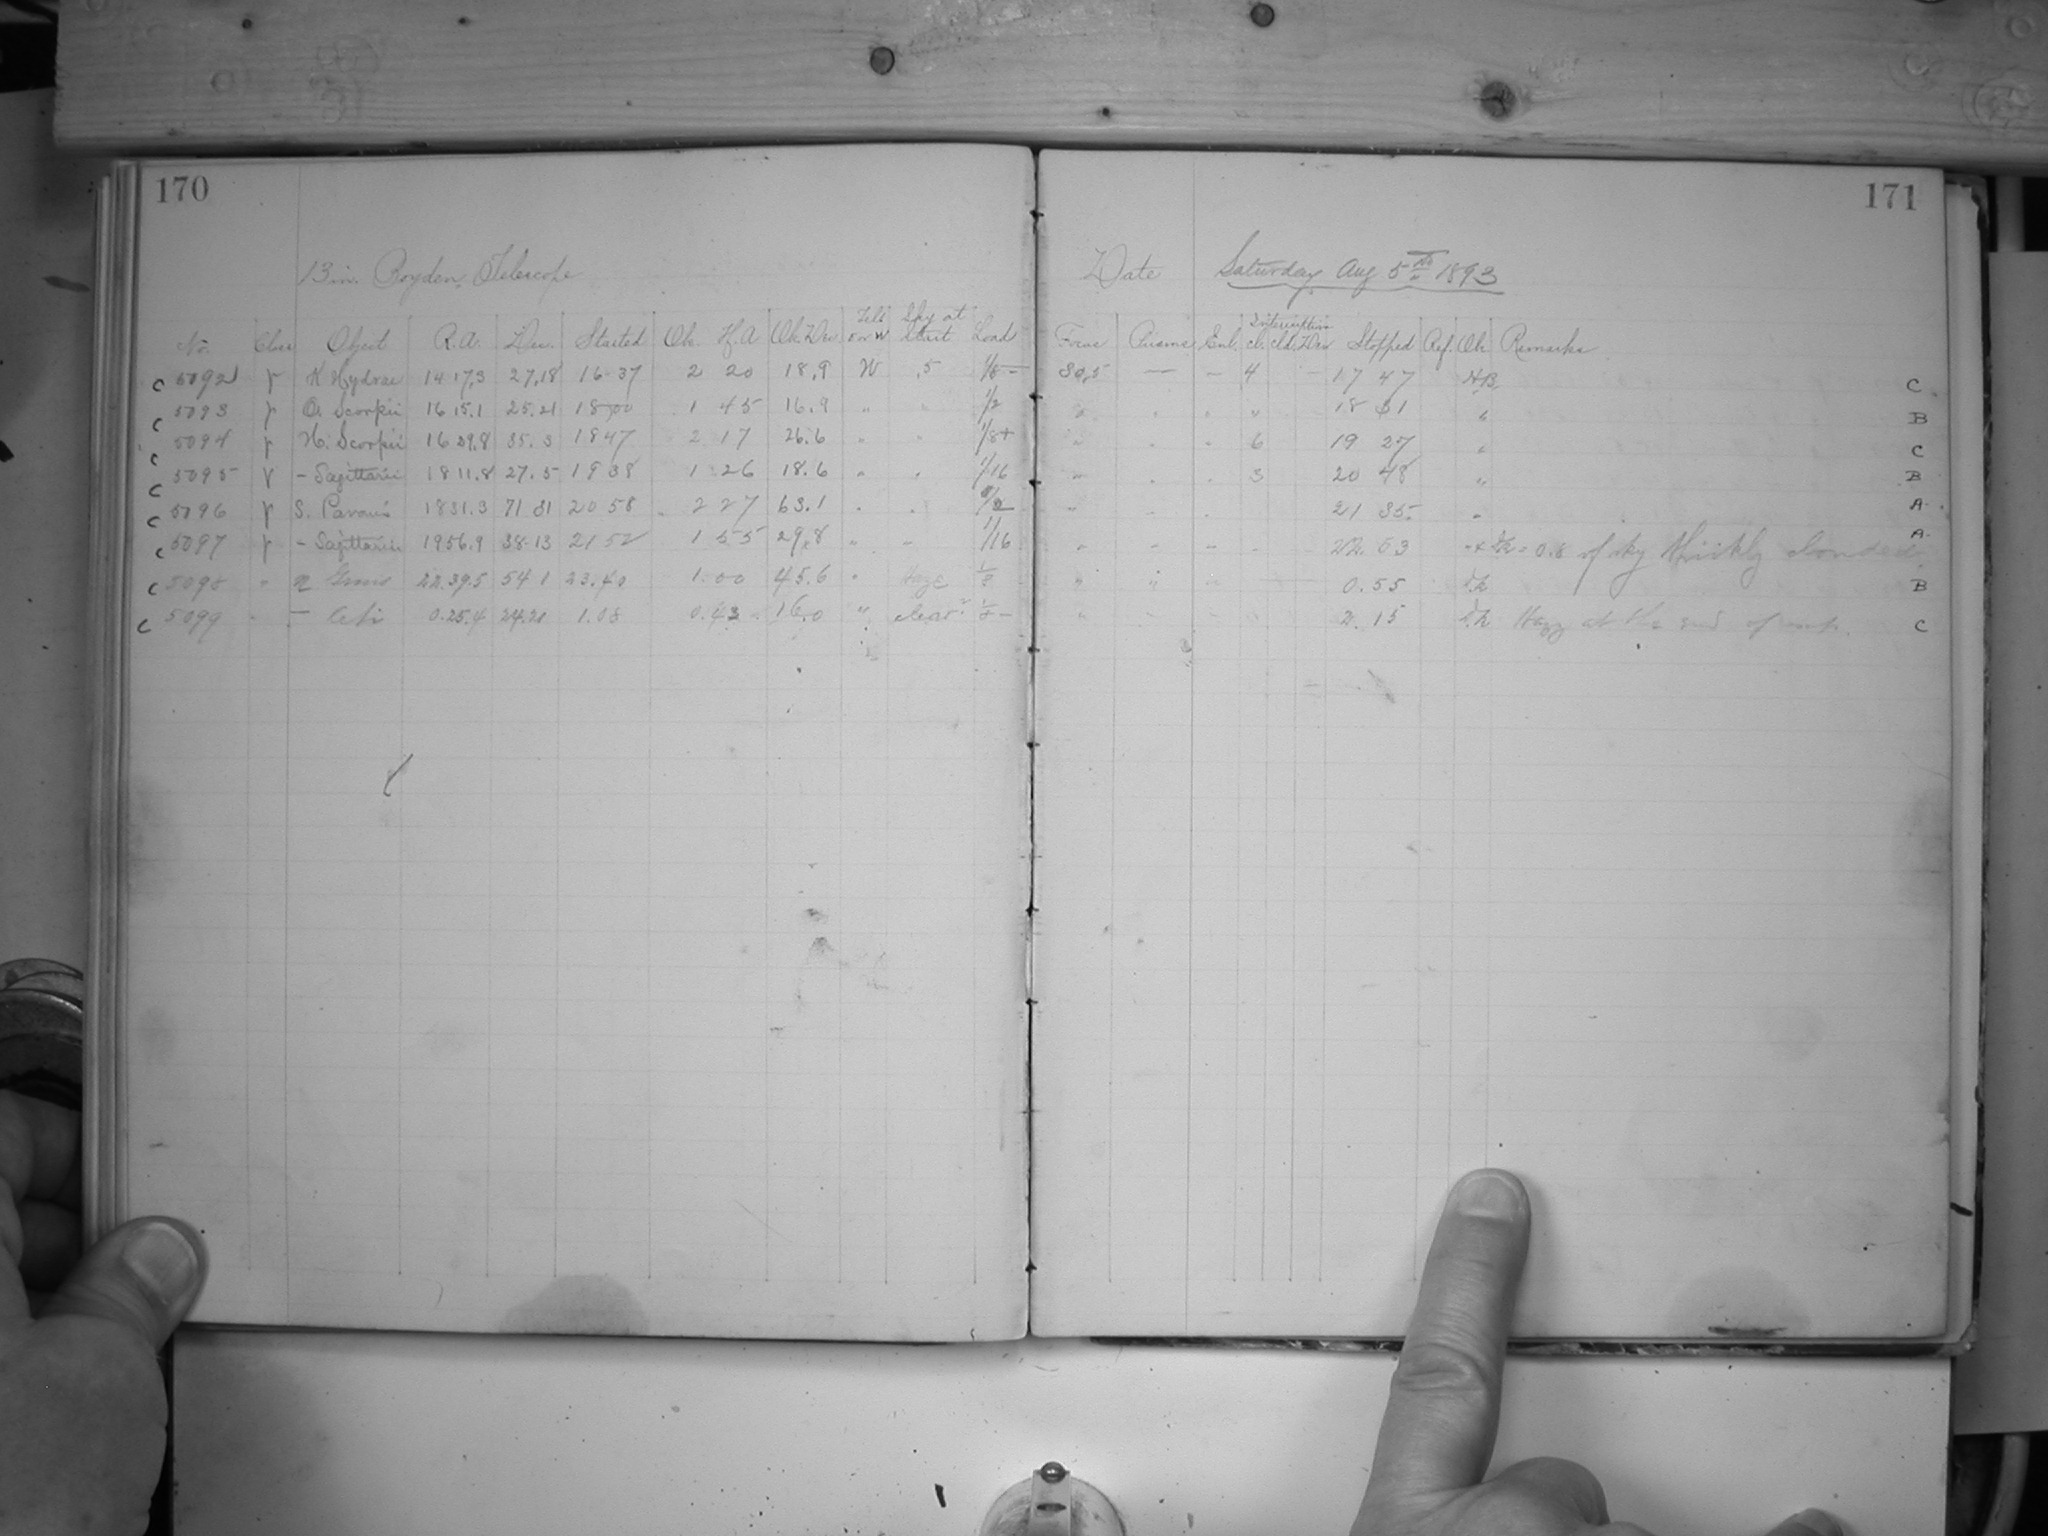 170
13 in. Boyden Telescope
No. Class Object R.A. Dec. Started Ob. H.A. Ob. Dec Tele E or W Sky at Start Load
C 5092 γ H Hydrae 14 17,3 27,18 16 37 2 20 18,9 W ,5 1/8 –
C 5093 γ O. Scorpii 16 15.1 25.21 18 00 1 45 16.9 " " 1/2
C 5094 γ H. Scorpii 16 29.8 35. 3 18 47 2 17 26.6 " " 1/8+
C 5095 γ – Sagittarii 18 11.8 27.5 19 38 1 26 18.6 " " 1/16
C 5096 γ S. Pavonis 18 31.3 71 31 20 58 2 27 63.1 " " 1/2
C 5097 γ – Sagittarii 19 56.9 38 13 21 52 1 55 29.8 " – 1/16
C 5098 " Grus 22.39.5 54 1 23.40 1.00 45.6 " Haze 1/8
C 5099 – Ceti 0.25.4 24.21 1.08 0.43 16.0 " clear? 1/8 –
171
Date Saturday Aug 5th 1893
Focus Prisms Enl. Interruption cl. cld. Dew Stopped Ref. Ob. Remarks
30,5 — – 4 – 17 47 H.B. C
" " " " 18 31 " B
" " " 6 19 27 " C
" " " 3 20 48 " B
" " " 21 35 " A
" – – – – 22. 53 0.6 of sky thickly clouded A
" " – 0.55 B
" – – – 2. 15 Hazy at the end of C